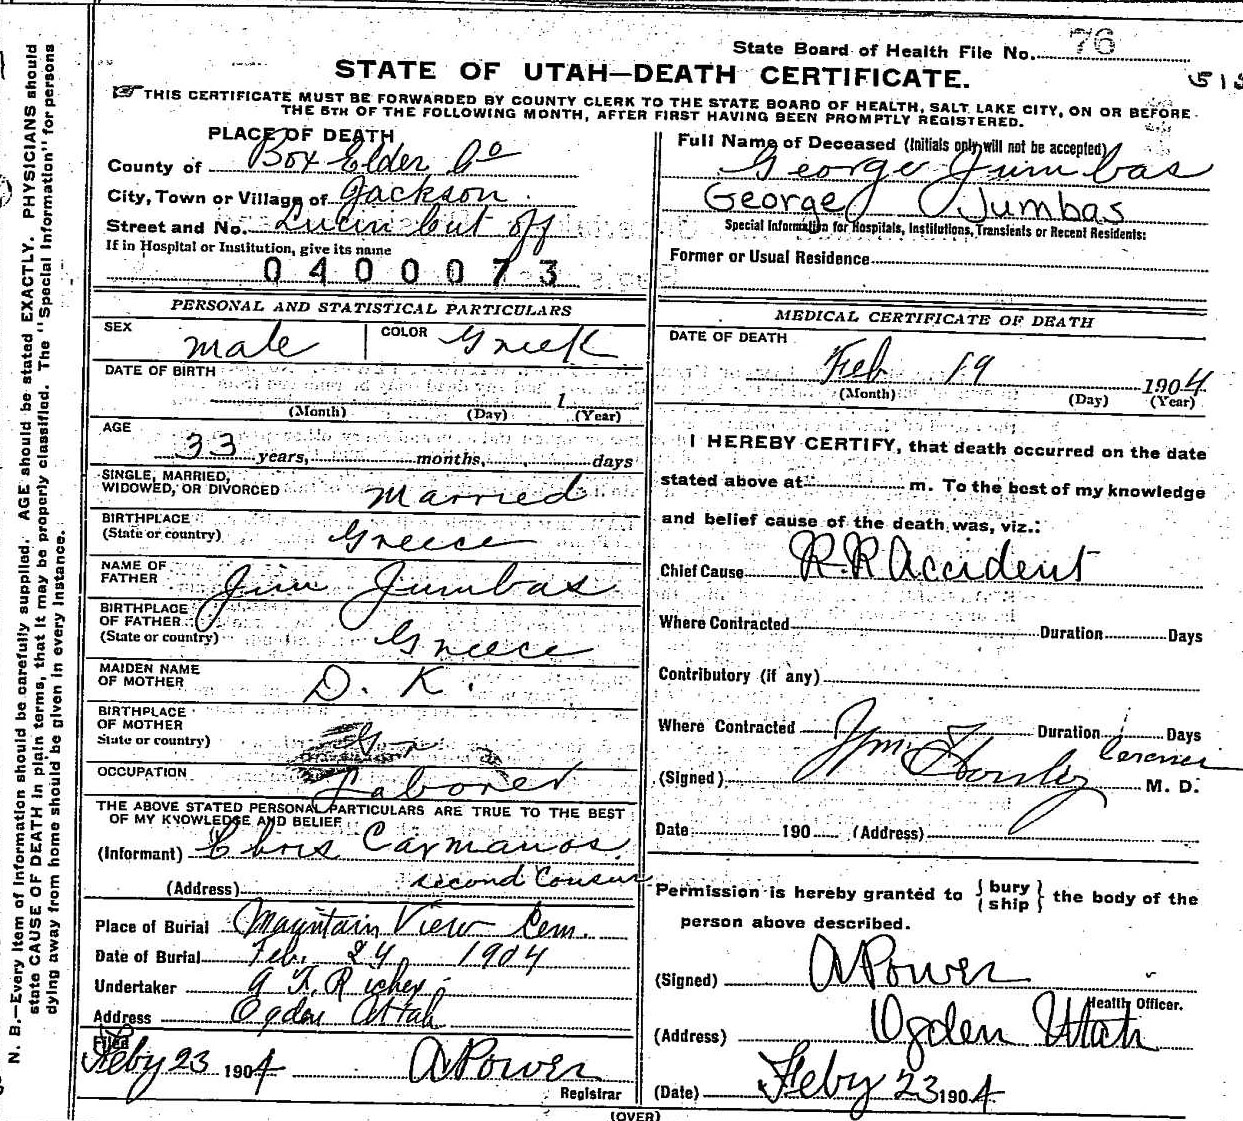 State Board of Health File No. 76
STATE OF UTAH—DEATH CERTIFICATE.
THIS CERTIFICATE MUST BE FORWARDED BY COUNTY CLERK TO THE STATE BOARD OF HEALTH, SALT LAKE CITY, ON OR BEFORE
THE 5TH OF THE FOLLOWING MONTH, AFTER FIRST HAVING BEEN PROMPTLY REGISTERED.
PLACE OF DEATH
County of Box Elder Co
City, Town or Village of Jackson
Street and No. Lucin Cut off
If in Hospital or Institution, give its name
0400073
PERSONAL AND STATISTICAL PARTICULARS
SEX male COLOR Greek
DATE OF BIRTH
1
(Month) (Day) (Year)
AGE
33 years, months, days
SINGLE, MARRIED,
WIDOWED, OR DIVORCED married
BIRTHPLACE
(State or country) Greece
NAME OF
FATHER Jim Jumbas
BIRTHPLACE
OF FATHER
(State or country) Greece
MAIDEN NAME
OF MOTHER D. K.
BIRTHPLACE
OF MOTHER
State or country)
OCCUPATION Laborer
THE ABOVE STATED PERSONAL PARTICULARS ARE TRUE TO THE BEST
OF MY KNOWLEDGE AND BELIEF
(Informant) Chris Carmanos.
(Address) second Cousin
Place of Burial Mountain View Cem.
Date of Burial Feb. 24 1904
Undertaker A K. Richey
Address Ogden Utah
Filed
Feby 23 1904 A Power
Registrar
Full Name of Deceased (Initials only will not be accepted)
George Jumbas
George Jumbas
Special Information for Hospitals, Institutions, Transients or Recent Residents:
Former or Usual Residence
MEDICAL CERTIFICATE OF DEATH
DATE OF DEATH
Feb 19 1904
(Month) (Day) (Year)
I HEREBY CERTIFY, that death occurred on the date
stated above at m. To the best of my knowledge
and belief cause of the death was, viz.:
Chief Cause R.R Accident
Where Contracted Duration Days
Contributory (if any)
Where Contracted Duration Days
Coroner
(Signed) Wm M. D.
Date 190 (Address)
Permission is hereby granted to {bury ship} the body of the
person above described.
(Signed) A Power
Health Officer.
(Address) Ogden Utah
(Date) Feby 23 1904
(OVER)
N. B.—Every item of information should be carefully supplied. AGE should be stated EXACTLY. PHYSICIANS should
state CAUSE OF DEATH in plain terms, that it may be properly classified. The "Special Information" for persons
dying away from home should be given in every instance.